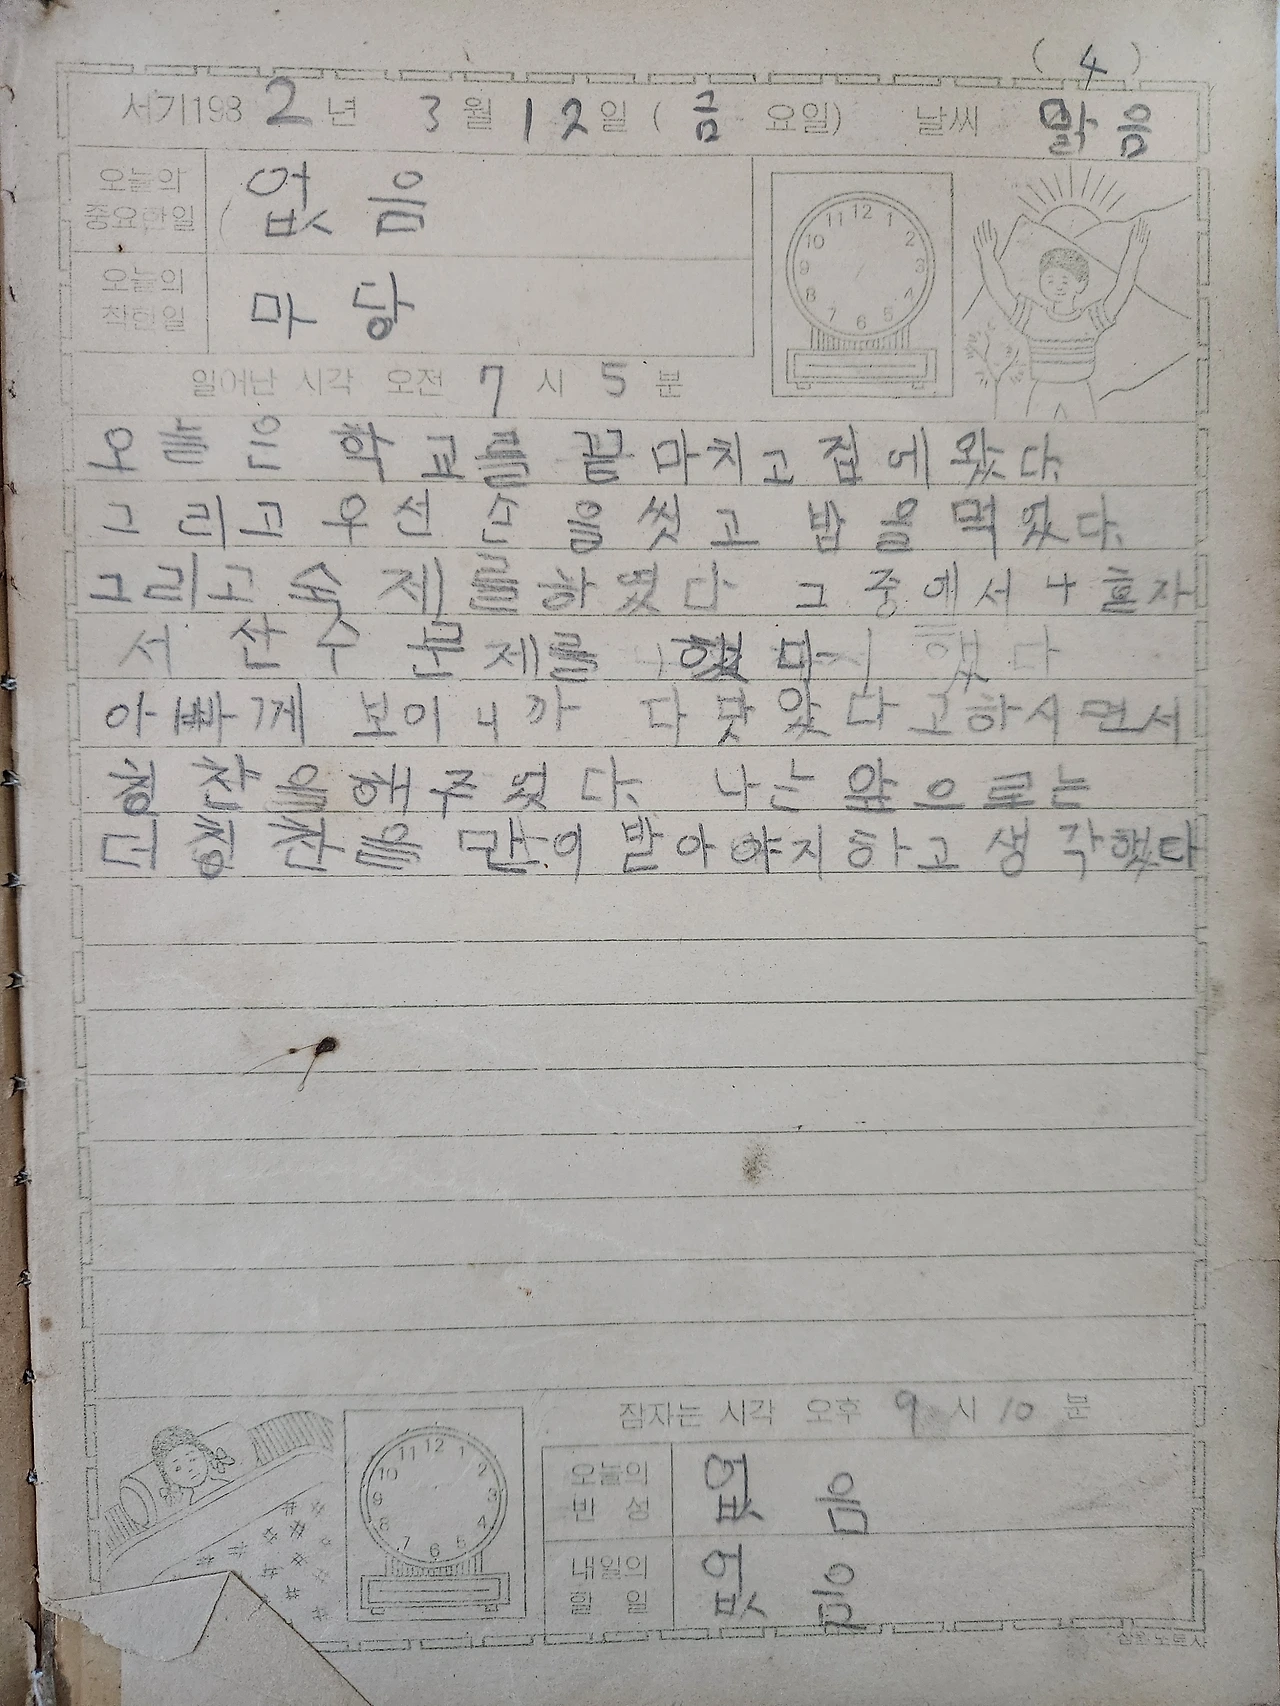 ( 4 )
서기1982년 3월 12일 (금요일) 날씨 맑음
오늘의 중요한일 없음
오늘의 착한일 마당
12 1 2 3 4 5 6 7 8 9 10 11
일어난 시각 오전 7시 5분
오늘은 학교를 끝마치고 집에 왔다.
그리고 우선 손을 씻고 밥을 먹었다.
그리고 숙제를 하였다 그 중에서 혼자
서 산수 문제를 했다
아빠께 보이니까 다 맞았다고 하시면서
칭찬을 해주었다. 나는 앞으로는
더 칭찬을 많이 받아야지 하고 생각했다
잠자는 시각 오후 9시 10분
12 1 2 3 4 5 6 7 8 9 10 11
오늘의 반 성 없음
내일의 할 일 없음